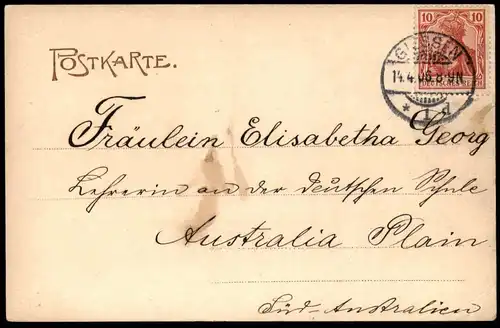 POSTKARTE.
10 10
GIESSEN
14.4.06.8-9N.
* 1 d
Fräulein Elisabetha Georg
Lehrerin an der deutschen Schule
Australia Plain
Süd-Australien